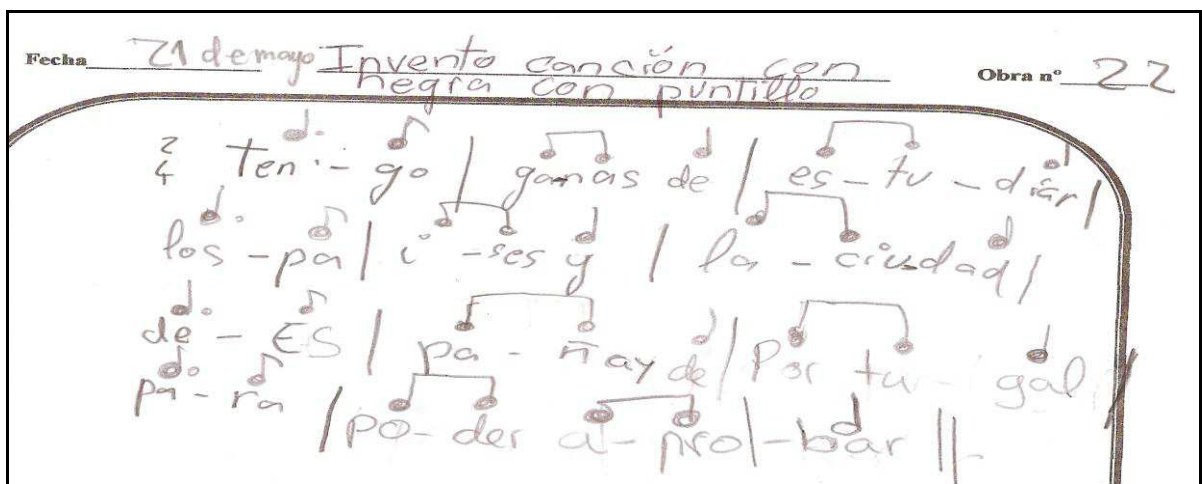 Fecha 21 de mayo Invento canción con Obra nº 22
negra con puntillo
2/4 Ten - go | ganas de | es - tu - diar |
los - pa | i - ses y | la - ciudad |
de - ES | pa - ñay de | Por tu - gal |
pa - ra | po - der a - pro | - bar ||